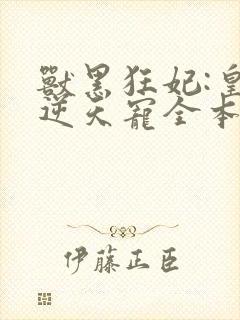 獸黑狂妃:皇
逆天寵全本
伊藤正臣